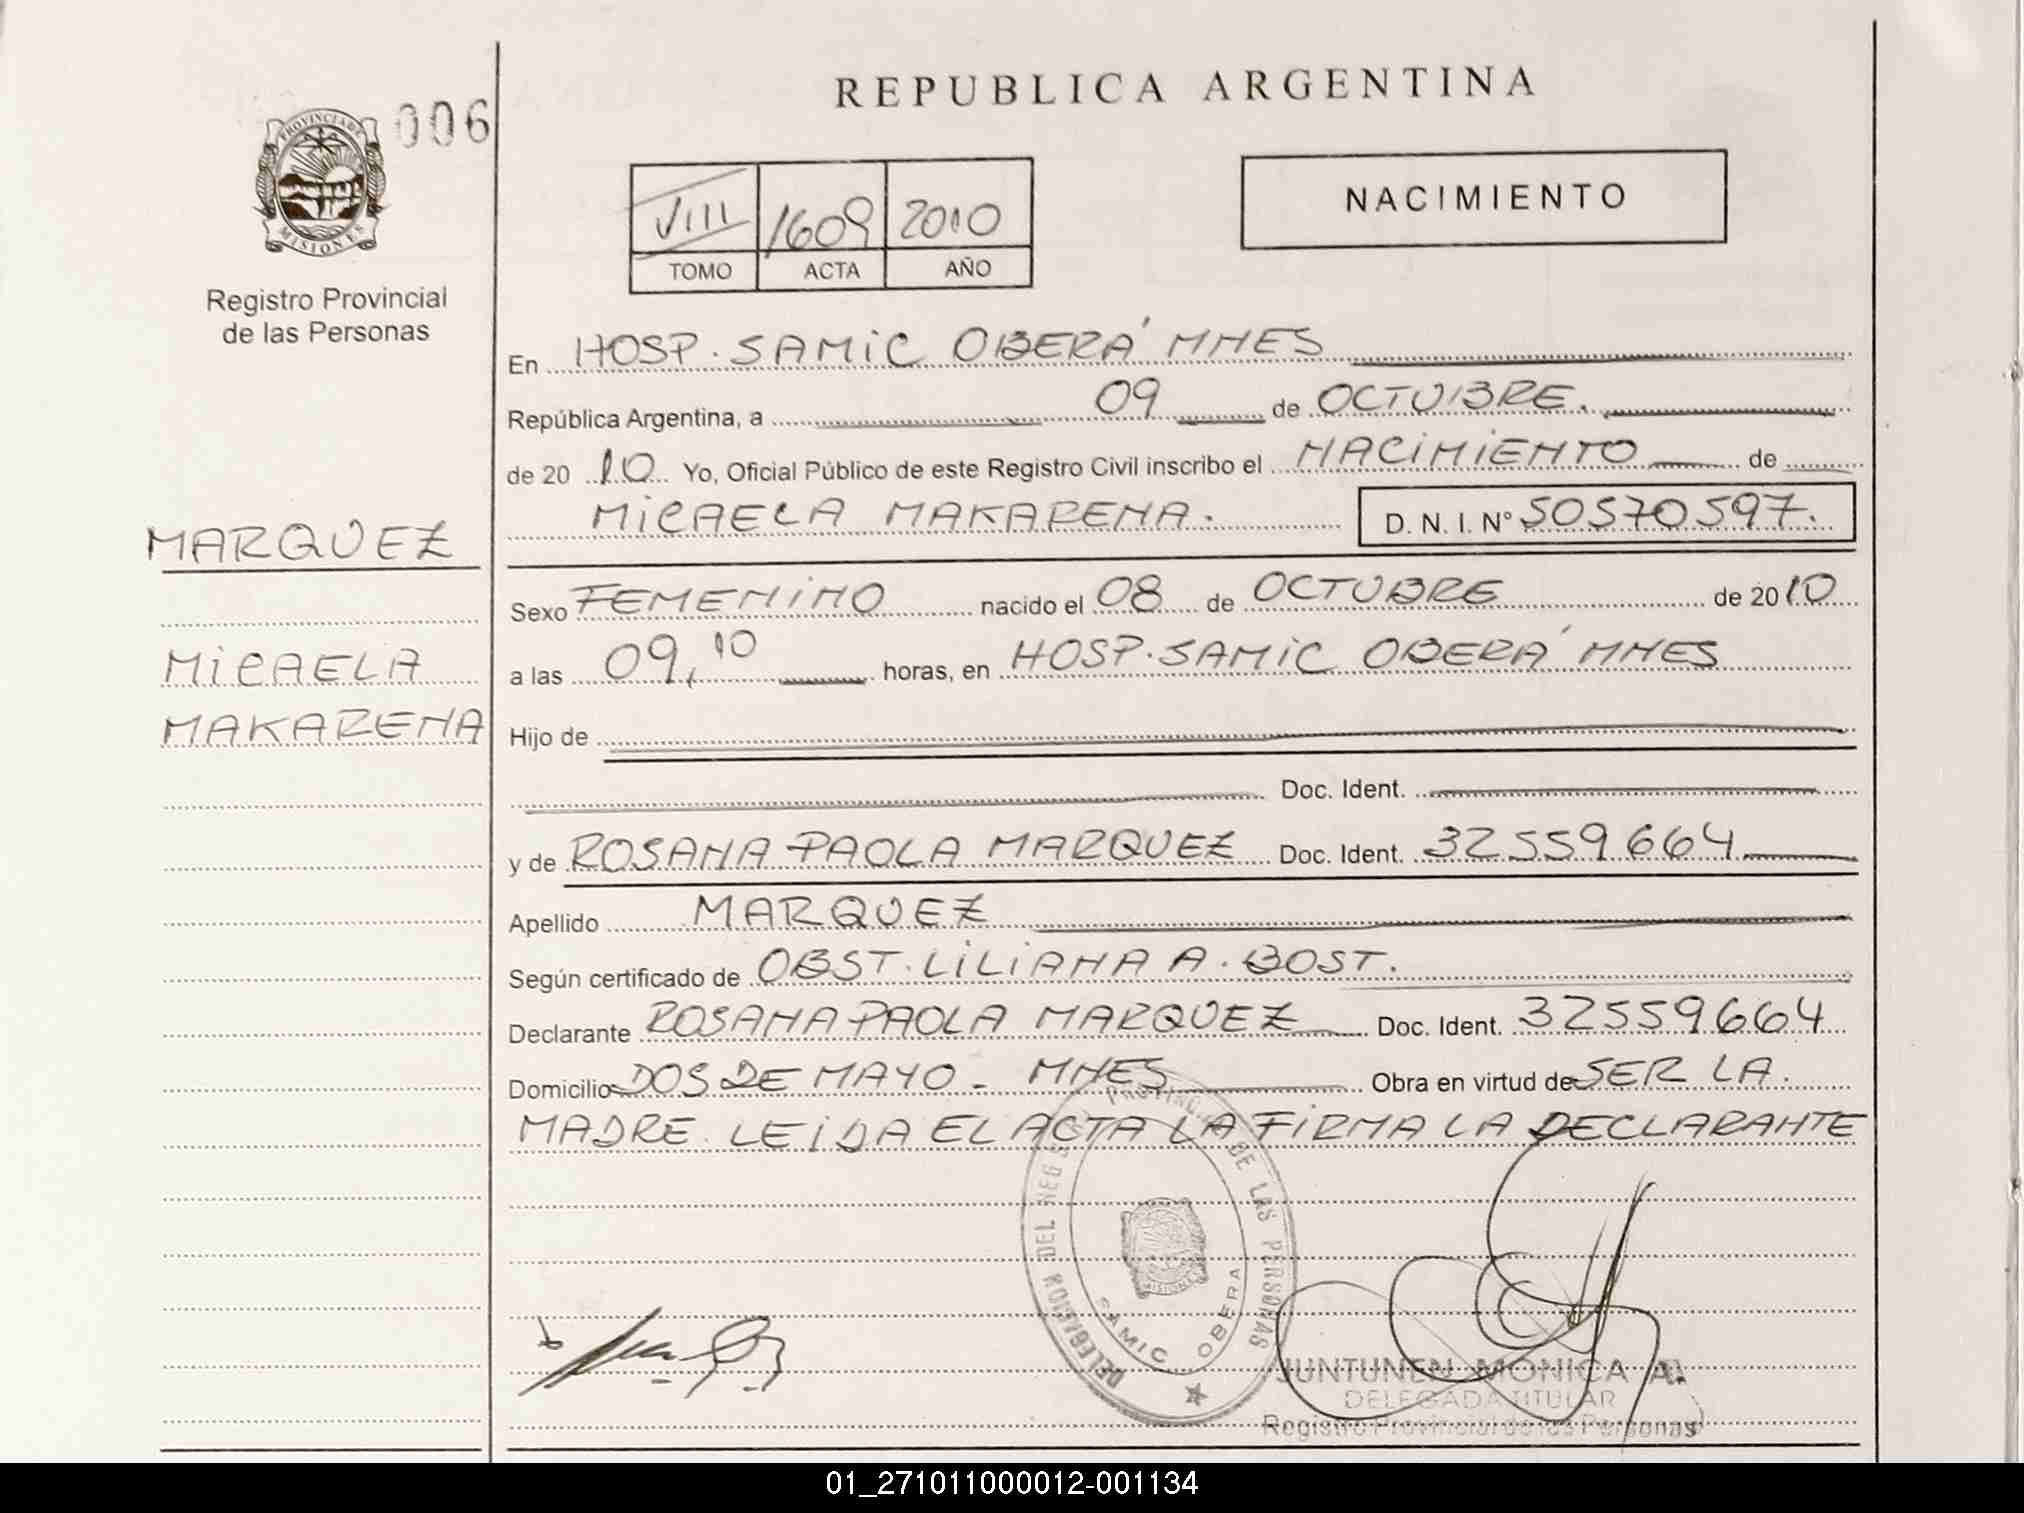 REPUBLICA ARGENTINA
PROVINCIA DE
MISIONES
006
VIII 1609 2010
TOMO ACTA AÑO
NACIMIENTO
Registro Provincial
de las Personas
En HOSP. SAMIC OBERÁ MNES
República Argentina, a 09 de OCTUBRE.
de 20 10 Yo, Oficial Público de este Registro Civil inscribo el NACIMIENTO de
MICAELA MAKARENA. D. N. I. Nº 50570597.
MARQUEZ
MICAELA
MAKARENA
Sexo FEMENINO nacido el 08 de OCTUBRE de 2010
a las 09,10 horas, en HOSP. SAMIC OBERÁ MNES
Hijo de
Doc. Ident.
y de ROSANA PAOLA MARQUEZ Doc. Ident. 32559664
Apellido MARQUEZ
Según certificado de OBST. LILIANA A. BOST.
Declarante ROSANA PAOLA MARQUEZ Doc. Ident. 32559664
Domicilio DOS DE MAYO - MNES Obra en virtud de SER LA
MADRE. LEIDA EL ACTA LA FIRMA LA DECLARANTE
DELEGACION DEL REG. PROVINC. DE LAS PERSONAS
MISIONES
SAMIC OBERA
JUNTUNEN MONICA A.
DELEGADA TITULAR
Registro Provincial de las Personas
01_271011000012-001134